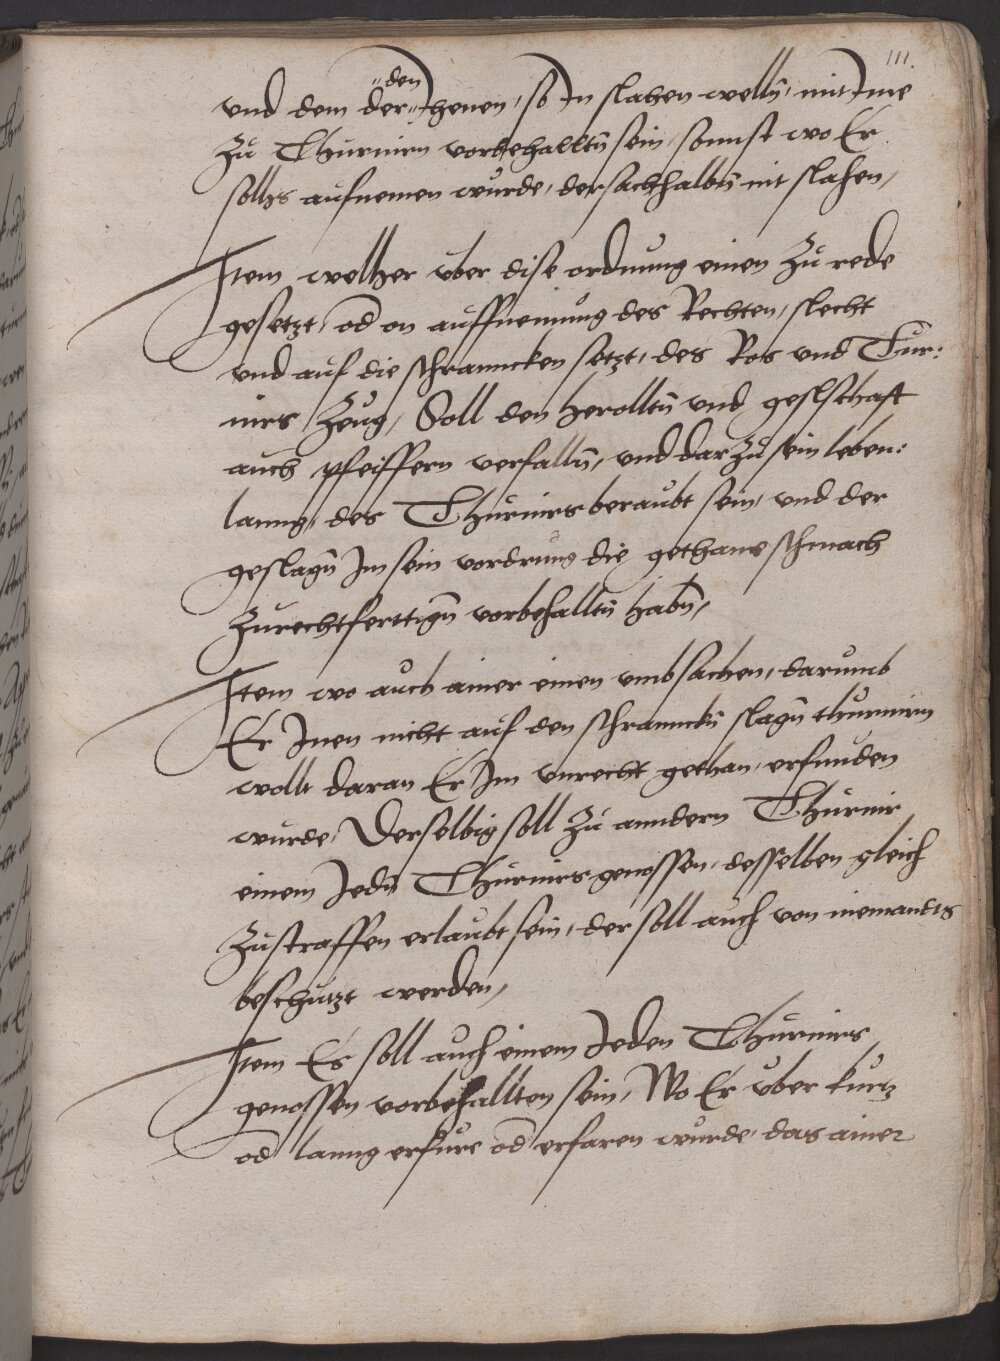 111.
den
vnd dem der Ihenen, so In slahen wellñ, mit Ime
Zu Thurnirn vorbehalltñ sein, sonnst wo Er
sollhs aufnemen wurde, der sachhalbñ nit slahen,
Item welher vber dise ordnung einen Zu rede
gesetzt, od on auffnemung des Rechten, slecht
vnd auf die schranncken setzt, des Ros vnd Tur:
nirs Zeug, Soll den herolltñ vnd geslschaft
auch pfeiffern verfallñ, vnd darzu sein leben:
lanng, des Thurnirs beraubt sein, vnd der
geslagñ Im sein vordrung die gethane schmach
Zurechtferttigñ vorbehalltñ habñ,
Item wo auch ainer einen vmb sachen, darumb
Er Inen nicht auf den schrannckñ slagñ thurnirn
wollt daran Er Im vnrecht gethan, erfunden
wurde, Derselbig soll Zu anndern Thurnir
einem Jedñ Thurnirs genossen, desselben gleich
Zustraffen erlaubt sein, der soll auch von niemandts
beschutzt werden,
Item Es soll auch einem Jeden Thurnirs
genossen vorbehallten sein, Wo Er vber kurtz
od lanng erfure od erfaren wurde, das ainer